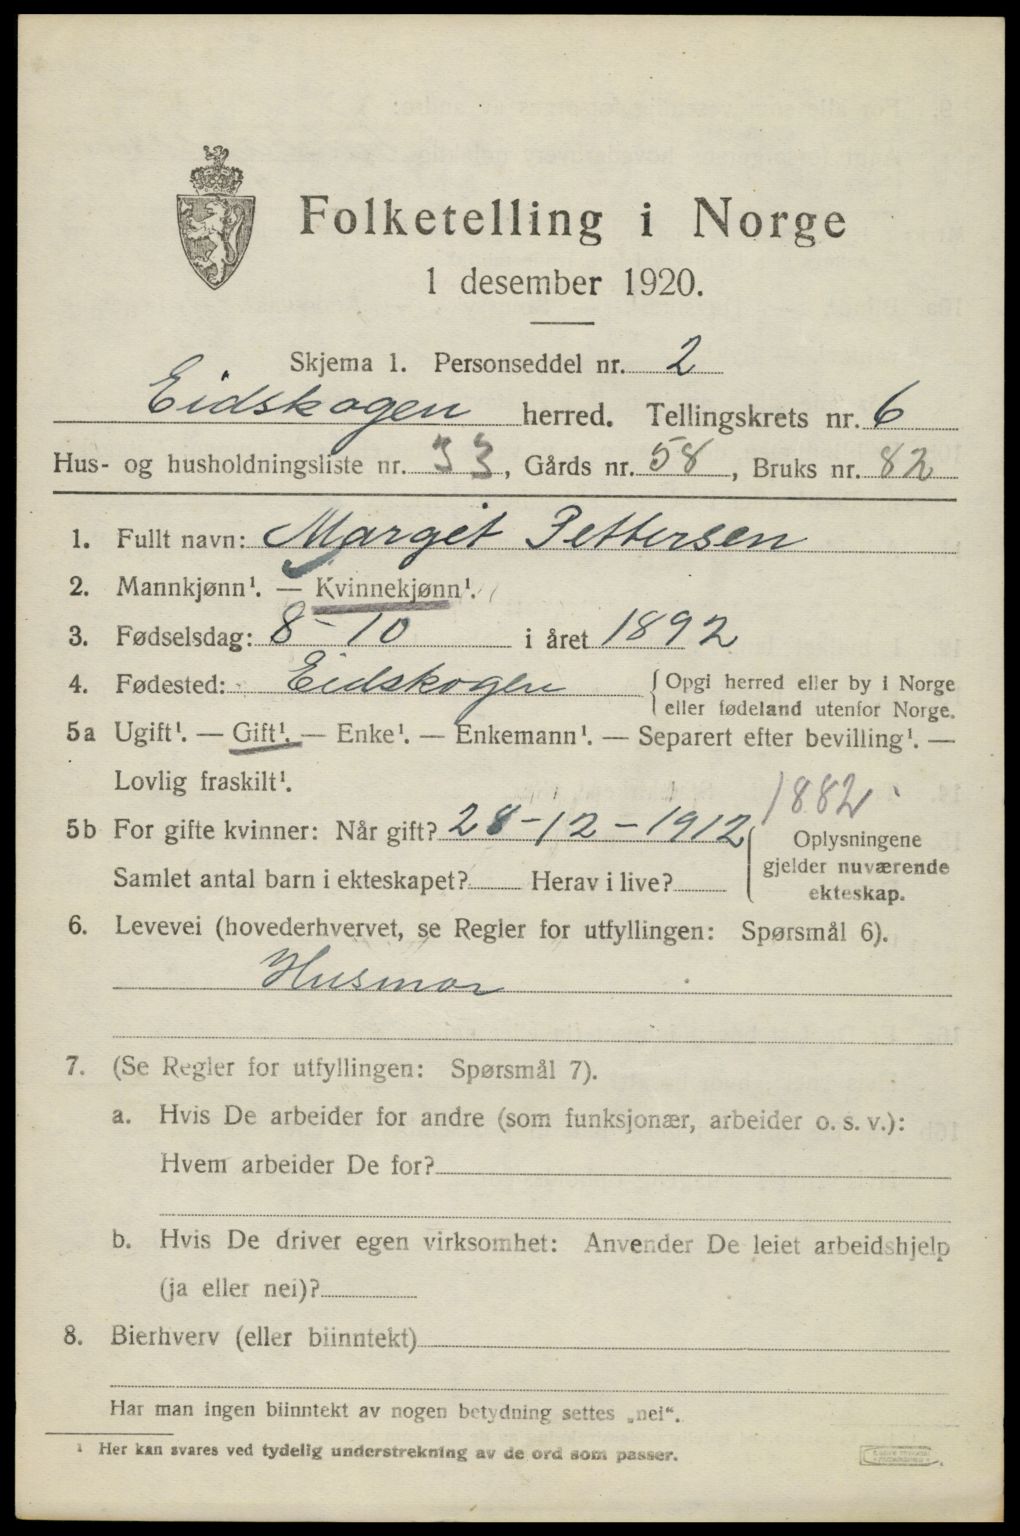 Folketelling i Norge
1 desember 1920.
Skjema 1. Personseddel nr. 2
Eidskogen herred. Tellingskrets nr. 6
Hus- og husholdningsliste nr. 33, Gårds nr. 58, Bruks nr. 82
1. Fullt navn: Margit Pettersen
2. Mannkjønn¹. — Kvinnekjønn¹.
3. Fødselsdag: 8-10 i året 1892
4. Fødested: Eidskogen { Opgi herred eller by i Norge
eller fødeland utenfor Norge.
5a Ugift¹. — Gift¹. — Enke¹. — Enkemann¹. — Separert efter bevilling¹. —
Lovlig fraskilt¹.
1882
5b For gifte kvinner: Når gift? 28-12-1912 { Oplysningene
gjelder nuværende
Samlet antal barn i ekteskapet? Herav i live?
ekteskap.
6. Levevei (hovederhvervet, se Regler for utfyllingen: Spørsmål 6).
Husmor
7. (Se Regler for utfyllingen: Spørsmål 7).
a. Hvis De arbeider for andre (som funksjonær, arbeider o. s. v.):
Hvem arbeider De for?
b. Hvis De driver egen virksomhet: Anvender De leiet arbeidshjelp
(ja eller nei)?
8. Bierhverv (eller biinntekt)
Har man ingen biinntekt av nogen betydning settes „nei“.
¹ Her kan svares ved tydelig understrekning av de ord som passer.